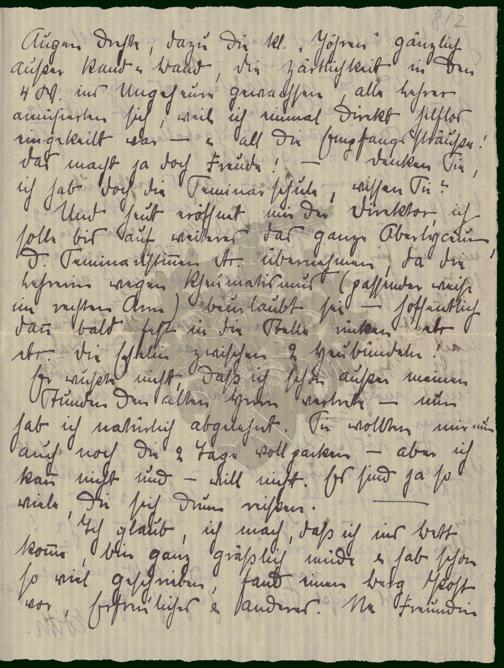 8/2
Augen drehte, dazu die kl. "Göhren" gänzlich
außer Rand u Band, die Zärtlichkeit in den
4 W. ins Ungeheure gewachsen, alle Lehrer
amüsierten sich, weil ich einmal direkt hilflos
eingekeilt war — u all die Empfangssträuße!
das macht ja doch Freude! — denken Sie,
ich hab doch die Seminarschule, wissen Sie?
Und heut eröffnet mir der Direktor ich
solle bis auf weiteres das ganze Oberlyceum,
d. Seminaristinnen etc. übernehmen, da die
Lehrerin wegen Rheumatismus (passender weise
im rechten Arm) beurlaubt sei — hoffentlich
dann bald fest in die Stelle rücken etc
etc. die Eselin zwischen 2 Heubündeln!
Er wußte nicht, daß ich schon außer meinen
Stunden den alten Herrn vertrete — nun
hab ich natürlich abgelehnt. Sie wollten mir nun
auch noch die 2 Tage vollpacken — aber ich
kann nicht und — will nicht. Es sind ja so
viele, die sich drum reißen.
Ich glaub, ich mach, daß ich ins Bett
komme, bin ganz gräßlich müde u hab schon
so viel geschrieben, fand einen Berg Post
vor, Erfreuliches u anderes. Ne Freundin